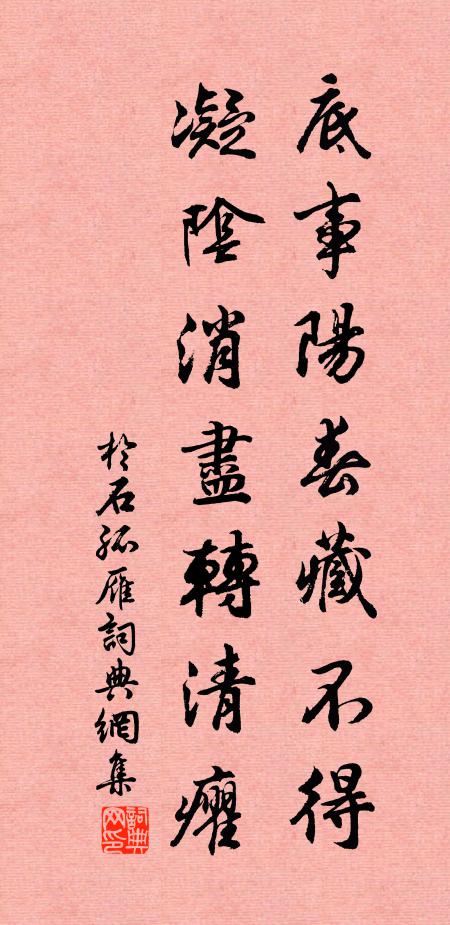 底事陽春藏不得
凝陰消盡轉清癯
於石孤雁詞典網集
詞典網印